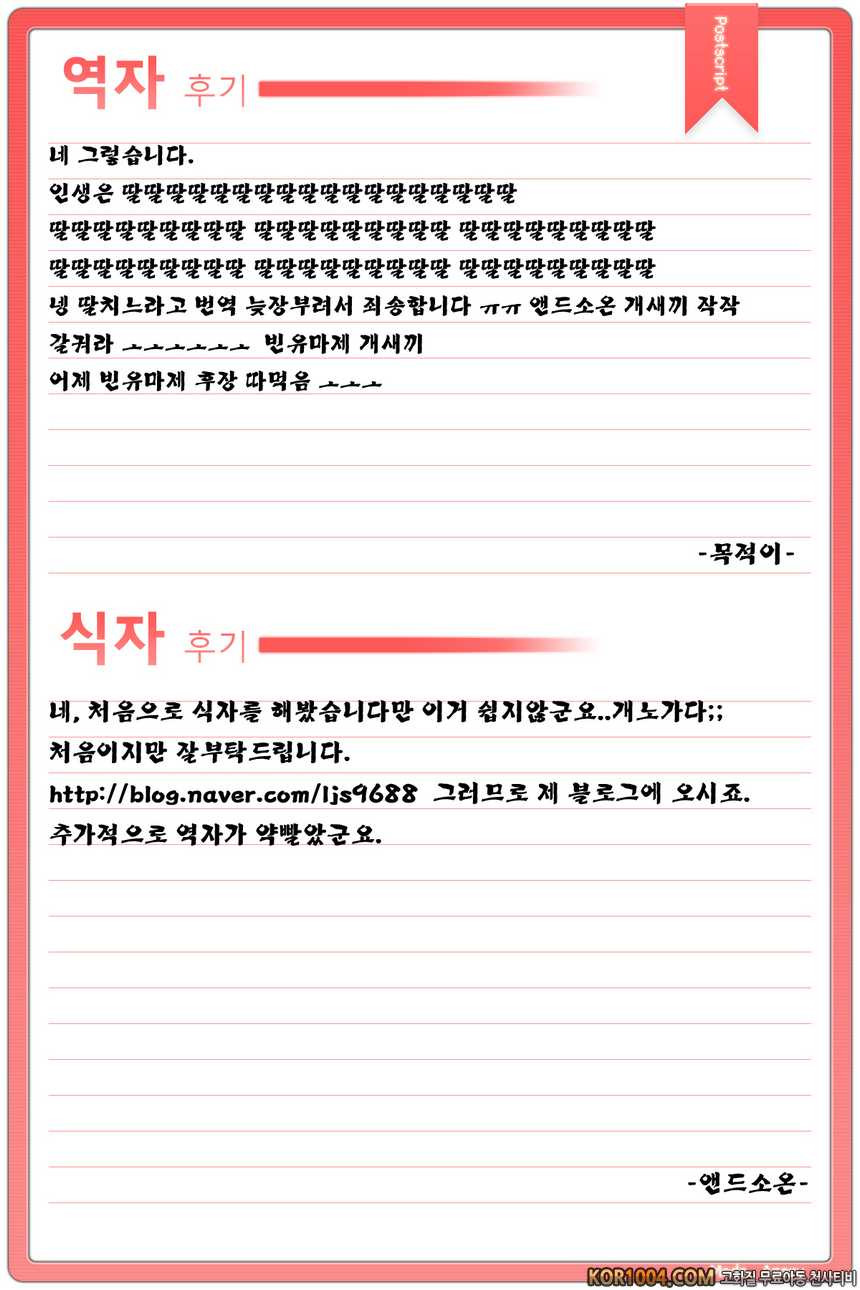 Postscript
역자 후기
네 그렇습니다.
인생은 딸딸딸딸딸딸딸딸딸딸딸딸딸딸딸딸딸딸
딸딸딸딸딸딸딸딸딸 딸딸딸딸딸딸딸딸딸 딸딸딸딸딸딸딸딸딸
딸딸딸딸딸딸딸딸딸 딸딸딸딸딸딸딸딸딸 딸딸딸딸딸딸딸딸딸
넹 딸치느라고 번역 늦장부려서 죄송합니다 ㅠㅠ 앤드소온 개새끼 작작
갈궈라 ㅗㅗㅗㅗㅗㅗ 빈유마제 개새끼
어제 빈유마제 후장 따먹음 ㅗㅗㅗ
-목적이-
식자 후기
네, 처음으로 식자를 해봤습니다만 이거 쉽지않군요..개노가다;;
처음이지만 잘부탁드립니다.
http://blog.naver.com/ljs9688 그러므로 제 블로그에 오시죠.
추가적으로 역자가 약빨았군요.
-앤드소온-
KOR1004.COM 고화질 무료야동 천사티비